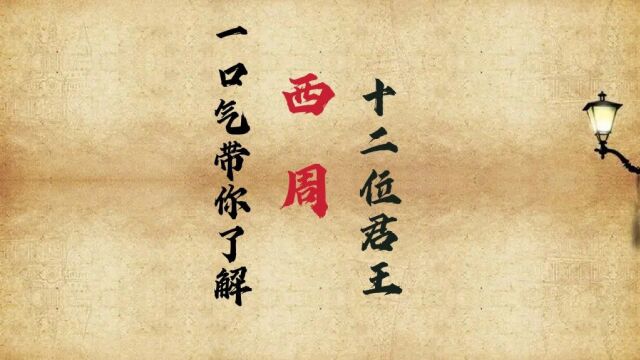 一口气带你了解
西周
十二位君王